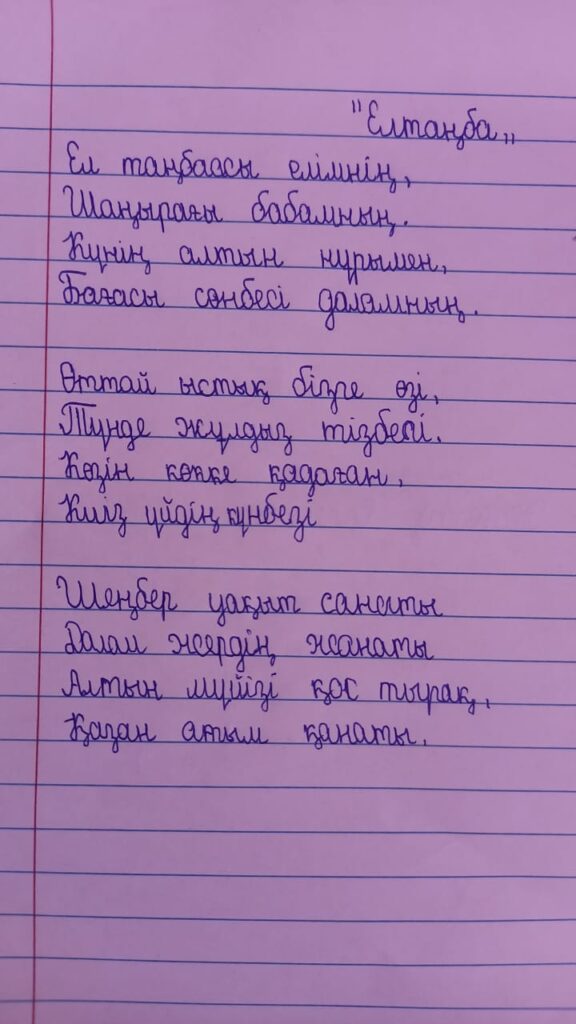 "Елтаңба"
Ел таңбасы елімнің,
Шаңырағы бабамның.
Күнің алтын нұрымен,
Бағасы сөнбесі даламның.
Өттай ыстық бізге өзі,
Түнде жұлдыз тізбегі.
Көзін көкке қадаған,
Киіз үйдің күнбезі
Шеңбер уақыт санаты
Далам жердің жанаты
Алтын мүйізі қос тырақ,
Қазан атым қанаты.